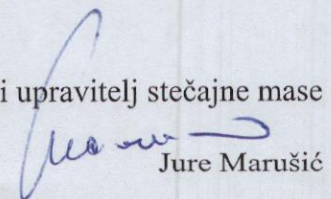 i upravitelj stečajne mase
Jure Marušić